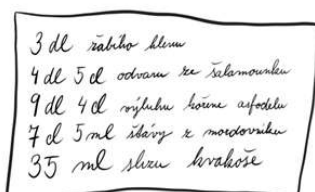 3 dl žabího hlenu
4 dl 5 cl odvaru ze šalamounku
9 dl 4 cl výluhu kořene asfodelu
7 cl 5 ml šťávy z mordovníku
35 ml slizu kvakoše